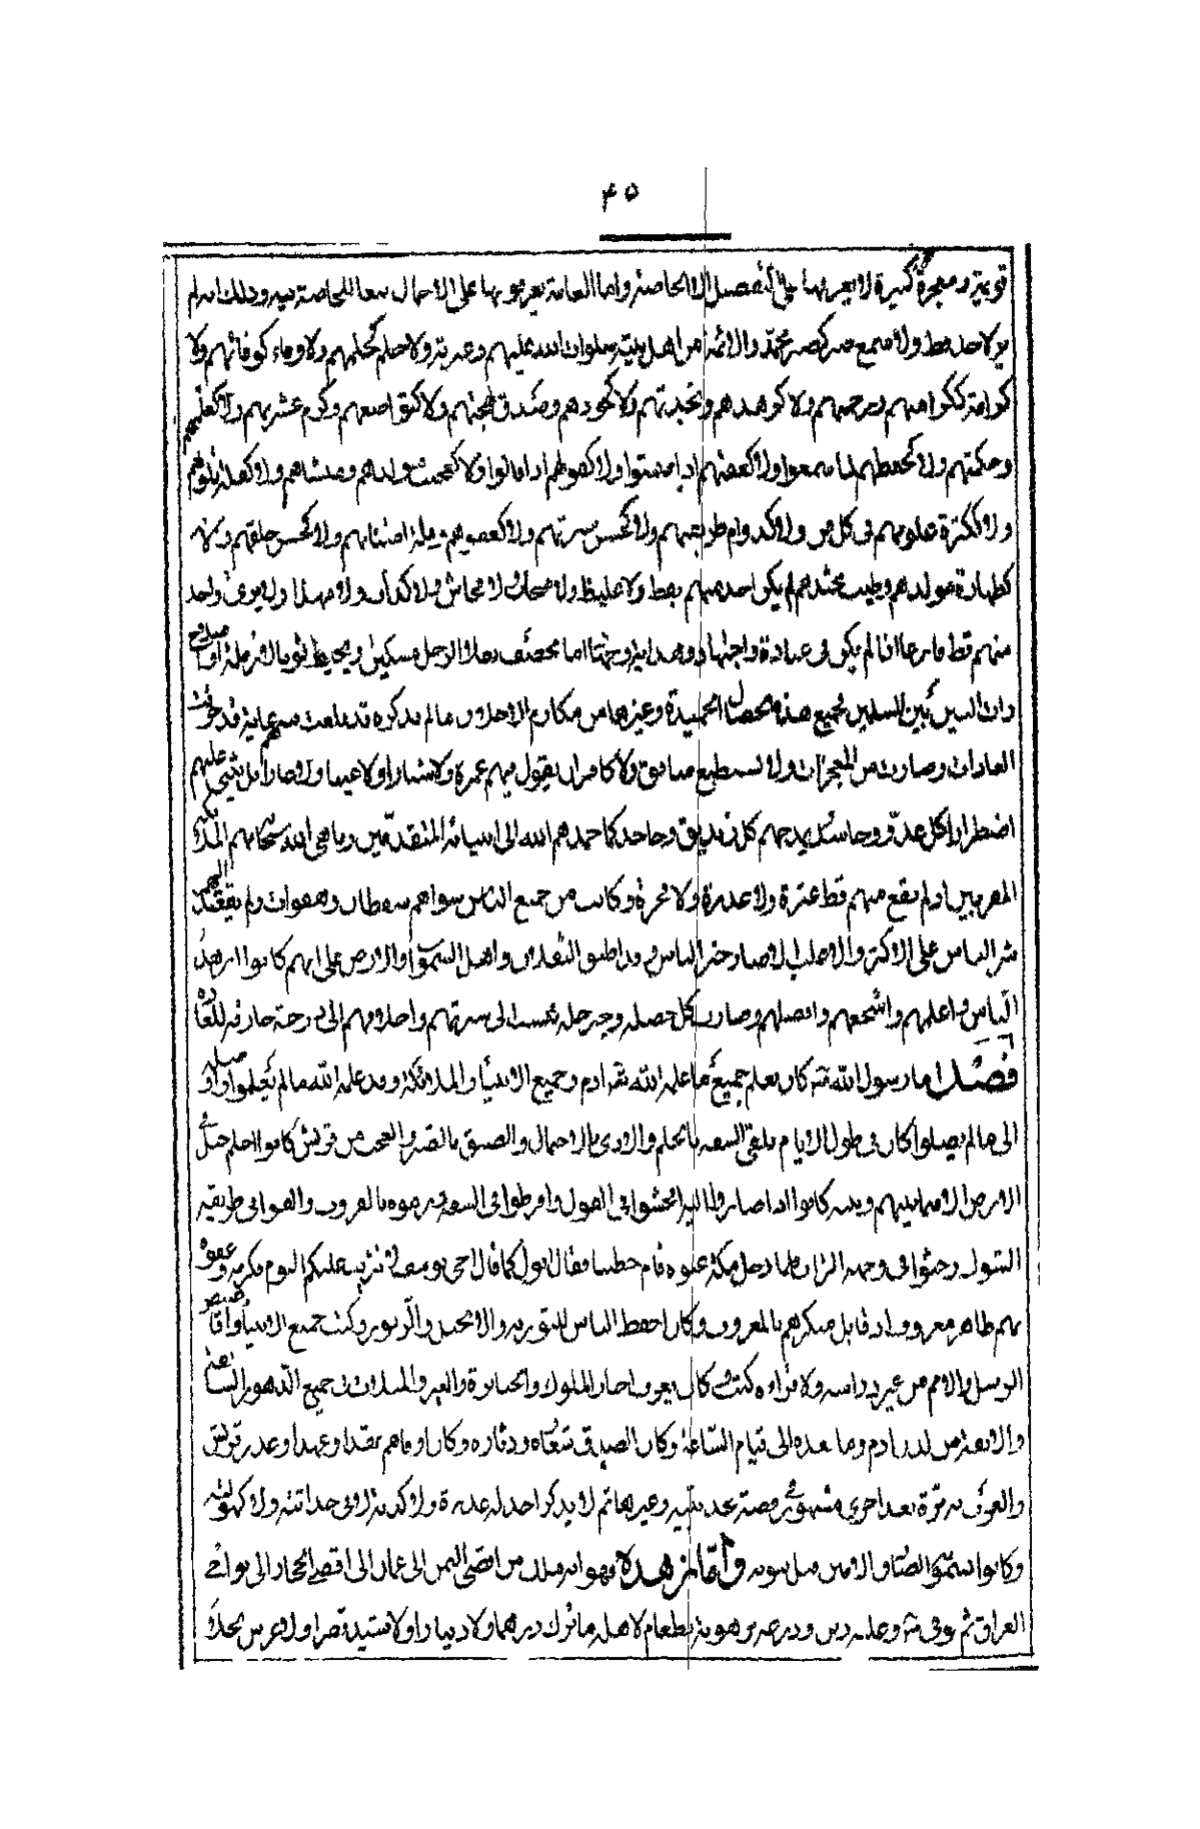 ٤٥
قوية ومعجزة كبيرة لا يعرفها على التفصيل الا الخاصة واما العامة يعرفونها على الاجمال تبعا للخاصة فيه وذلك انه لم
ير لاحد قط ولا سمع صبر كصبر محمد والائمة من اهل بيته صلوات الله عليهم وعترته ولا حلم كحلمهم ولا وفاء كوفائهم ولا
كرامة ككرامتهم ورحمهم ولا كزهدهم ونجدتهم ولا كجودهم وصدق لهجتهم ولا كتواضعهم وكرم عشرتهم ولا كعلمهم
وحكمتهم ولا كحفظهم لما سمعوا ولا كعفوهم ولا كصمتهم اذا صمتوا ولا كقولهم اذا قالوا ولا كعجيب مولدهم ومنشاهم ولا كقلة تلونهم
ولا ككثرة علومهم فى كل فن ولا كدوام طريقتهم ولا كحسن سيرتهم ولا كعفوهم وقلة امتنانهم ولا كحسن خلقهم ولا
كطهارة مولدهم وطيب محتدهم لم يكن احد منهم بفظ ولا غليظ ولا صخاب ولا فحاش ولا كذاب ولا مهذار ولا يرى واحد
منهم قط فارغا اذا لم يكن فى عبادة واجتهاد وهداية وجهاد اما يخصف نعلا لرجل مسكين او يخيط ثوبا لارملة او اصلاح
ذات البين بين المسلمين فجميع هذه الخصال الحميدة وغيرها من مكارم الاخلاق مما لم نذكره قد بلغت منهم غاية قد خرقت
العادات وصارت من المعجزات ولا يستطيع منافق ولا كافر ان يقول فيهم غمزة ولا شنارا ولا عيبا ولا عارا بل يثنى عليهم
اضطرارا كل عدو وحاسد ويمدحهم كل زنديق وجاحد كما حمدهم الله الى انبيائه المتقدمين وباهى الله سبحانه بهم الملائكة
المقربين اذ لم يقع منهم قط عثرة ولا غدرة ولا فجرة وكانت من جميع الناس سواهم سقطات وهفوات ولم يقتد بهم
شر الناس على الاكثر والاغلب الا صار خير الناس وقد اطبق الثقلان واهل السموات والارض على انهم كانوا ازهد
الناس واعلمهم واشجعهم وافضلهم وصارت كل خصلة وخلة نسبت الى سيرتهم واخلاقهم الى درجة خارقة للعادة
فصل اما رسول الله ص فانه كان يعلم جميع ما علمه الله تعالى ادم وجميع الانبياء والملائكة وقد علمه الله ما لم يعلموا ووصل
الى ما لم يصلوا كان فى طول الايام يلقى السفه بالحلم والاذى بالاحتمال والضيق بالصبر والعجب من قريش كانوا احلم جيل فى
الارض الا فيما بينهم وبينه كانوا اذا صاروا اليه افحشوا فى القول وافرطوا فى السفه ورموه بالفروث والقوا فى طريقه
الشوك وحثوا فى وجهه التراب فلما دخل مكة عنوة قام خطيبا فقال اقول كما قال اخى يوسف لا تثريب عليكم اليوم فكرمه وعفوه
بهم ظاهر معروف اذ قابل منكرهم بالمعروف وكان احفظ الناس للتورية والانجيل والزبور وكتب جميع الانبياء وقصص
الرسل والامم من غير دراسة ولا قراءة كتب وكان يعرف اخبار الملوك والجبابرة والعير والسادات فى جميع الدهور السالفة
والانفة من لدن ادم وما بعده الى قيام الساعة وكان الصدق شعاره ودثاره وكان اوفاهم عقدا وعهدا وغدر قريش
والعرب به مرة بعد اخرى مشهور فى قصة الحديبية وغيرها ثم لا يذكر احد له غدرة ولا كذبة لا فى حداثته ولا كهولته
وكانوا يسمونه الصادق الامين قبل نبوته واما زهده فهو انه ملك من اقصى اليمن الى عمان الى اقصى الحجاز الى نواحى
العراق ثم توفى ص وعليه دين ودرعه مرهونة بطعام لاهله ما ترك درهما ولا دينارا ولا شيد قصرا ولا غرس نخلا